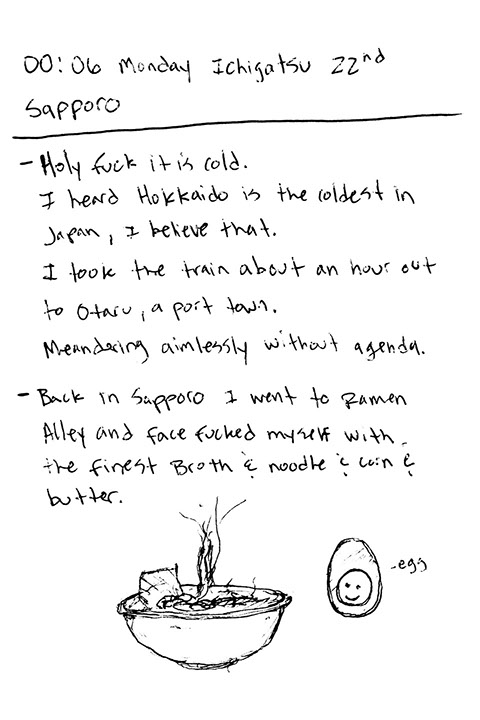 00:06 Monday Ichigatsu 22nd
Sapporo
- Holy fuck it is cold.
I heard Hokkaido is the coldest in
Japan, I believe that.
I took the train about an hour out
to Otaru, a port town.
Meandering aimlessly without agenda.
- Back in Sapporo I went to Ramen
Alley and face fucked myself with
the finest Broth & noodle & corn &
butter.
- egg